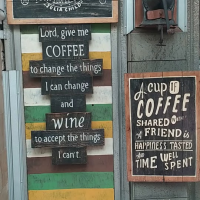 JULIA CHILD
Lord, give me
COFFEE
to change the things
I can change
and
WINE
to accept the things
I can't.
A CUP OF
COFFEE
SHARED WITH
A FRIEND IS
HAPPINESS TASTED
& TIME WELL
SPENT